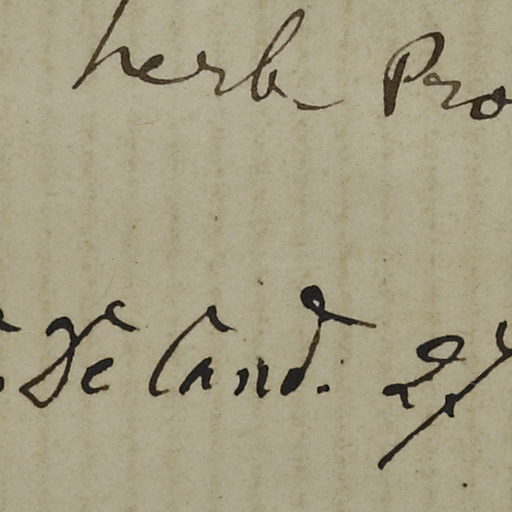 herb Pro
De Cand.